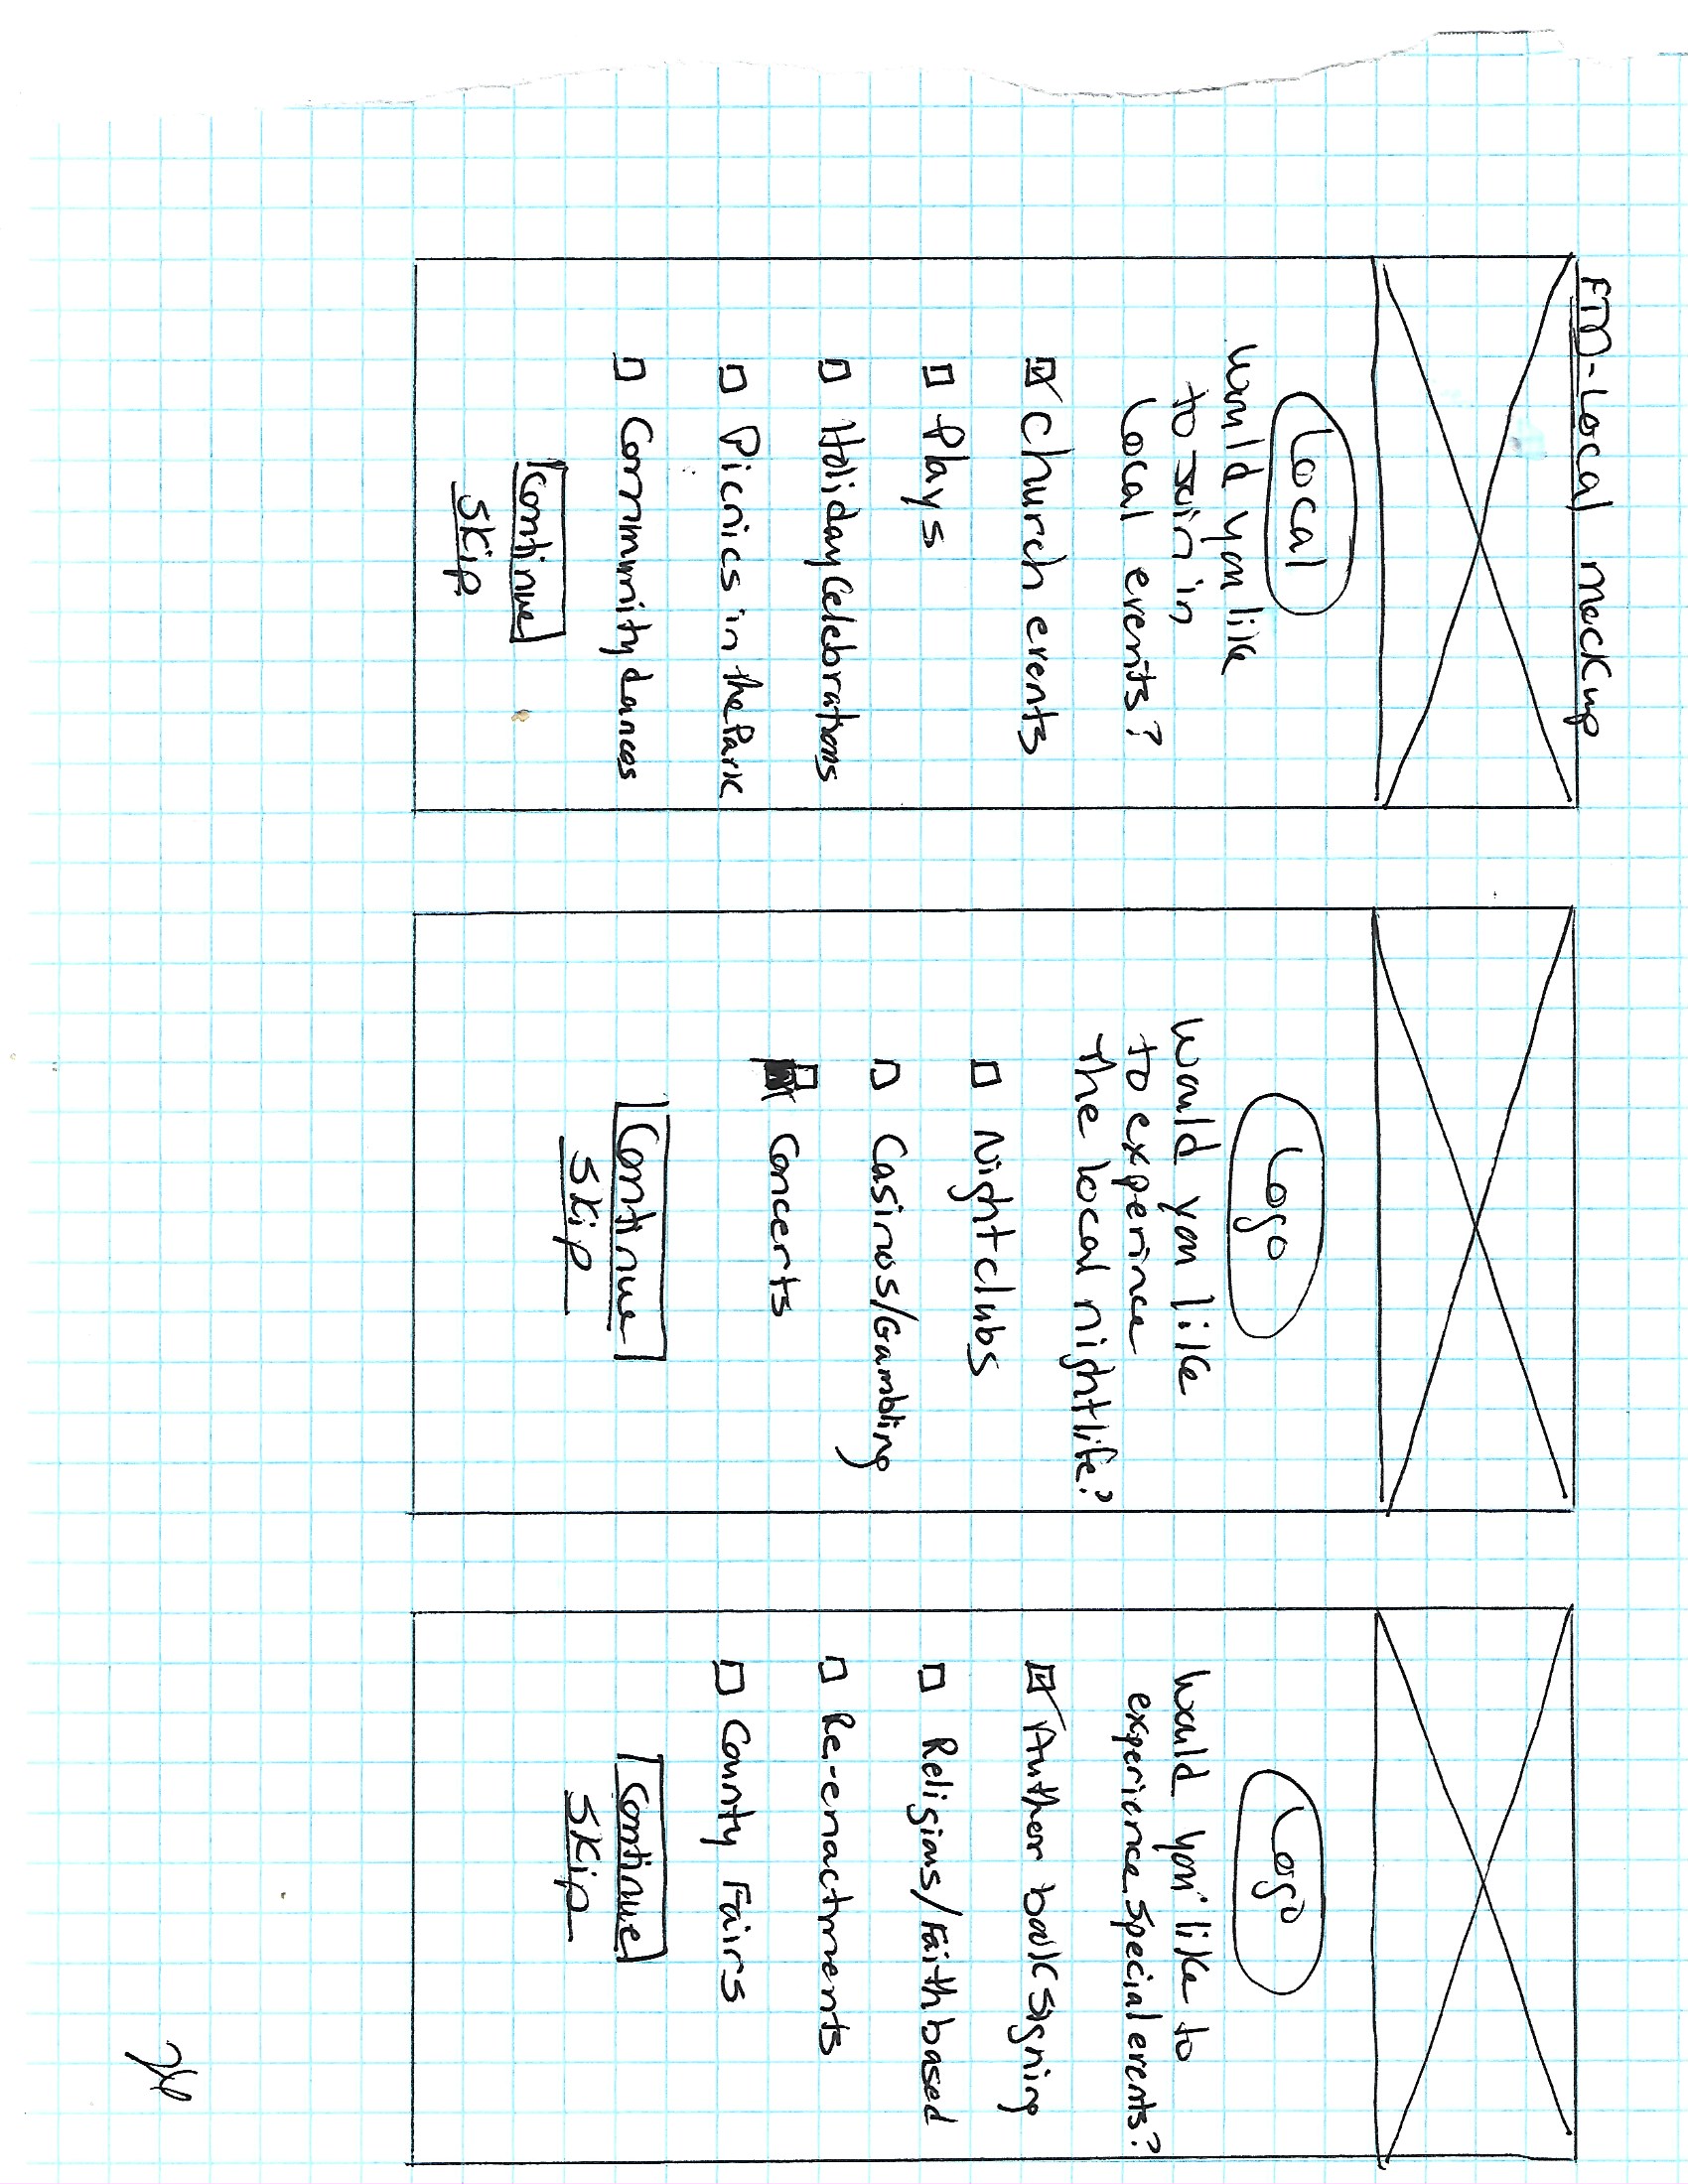 FTM-Local mockup
Local
Would you like
to join in
Local events?
Church events
Plays
Holiday Celebrations
Picnics in the Park
Community dances
Continue
Skip
Logo
Would you like
to experince
The local nightlife?
Nightclubs
Casinos/Gambling
Concerts
Continue
Skip
Logo
Would you like to
experience special events?
Author book signing
Religious/Faith based
Re-enactments
County Fairs
Continue
Skip